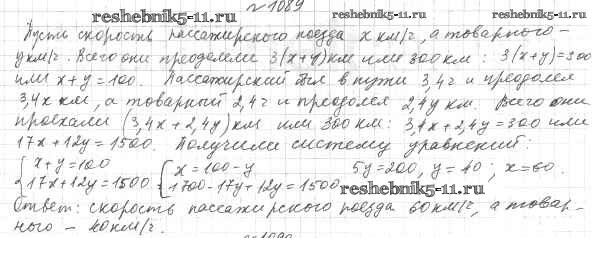 №1089
reshebnik5-11.ru reshebnik5-11.ru
Пусть скорость пассажирского поезда x км/ч, а товарного –
y км/ч. Всего они преодолели 3(x+y) км или 300 км: 3(x+y)=300
или x+y=100. Пассажирский был в пути 3,4 ч и преодолел
3,4x км, а товарный 2,4 ч и преодолел 2,4y км. Всего они
проехали (3,4x+2,4y) км или 300 км: 3,4x+2,4y=300 или
17x+12y=1500. Получили систему уравнений:
{x+y=100 {x=100-y 5y=200, y=40; x=60.
{17x+12y=1500 {1700-17y+12y=1500
reshebnik5-11.ru
Ответ: скорость пассажирского поезда 60 км/ч, а товар-
ного – 40 км/ч.